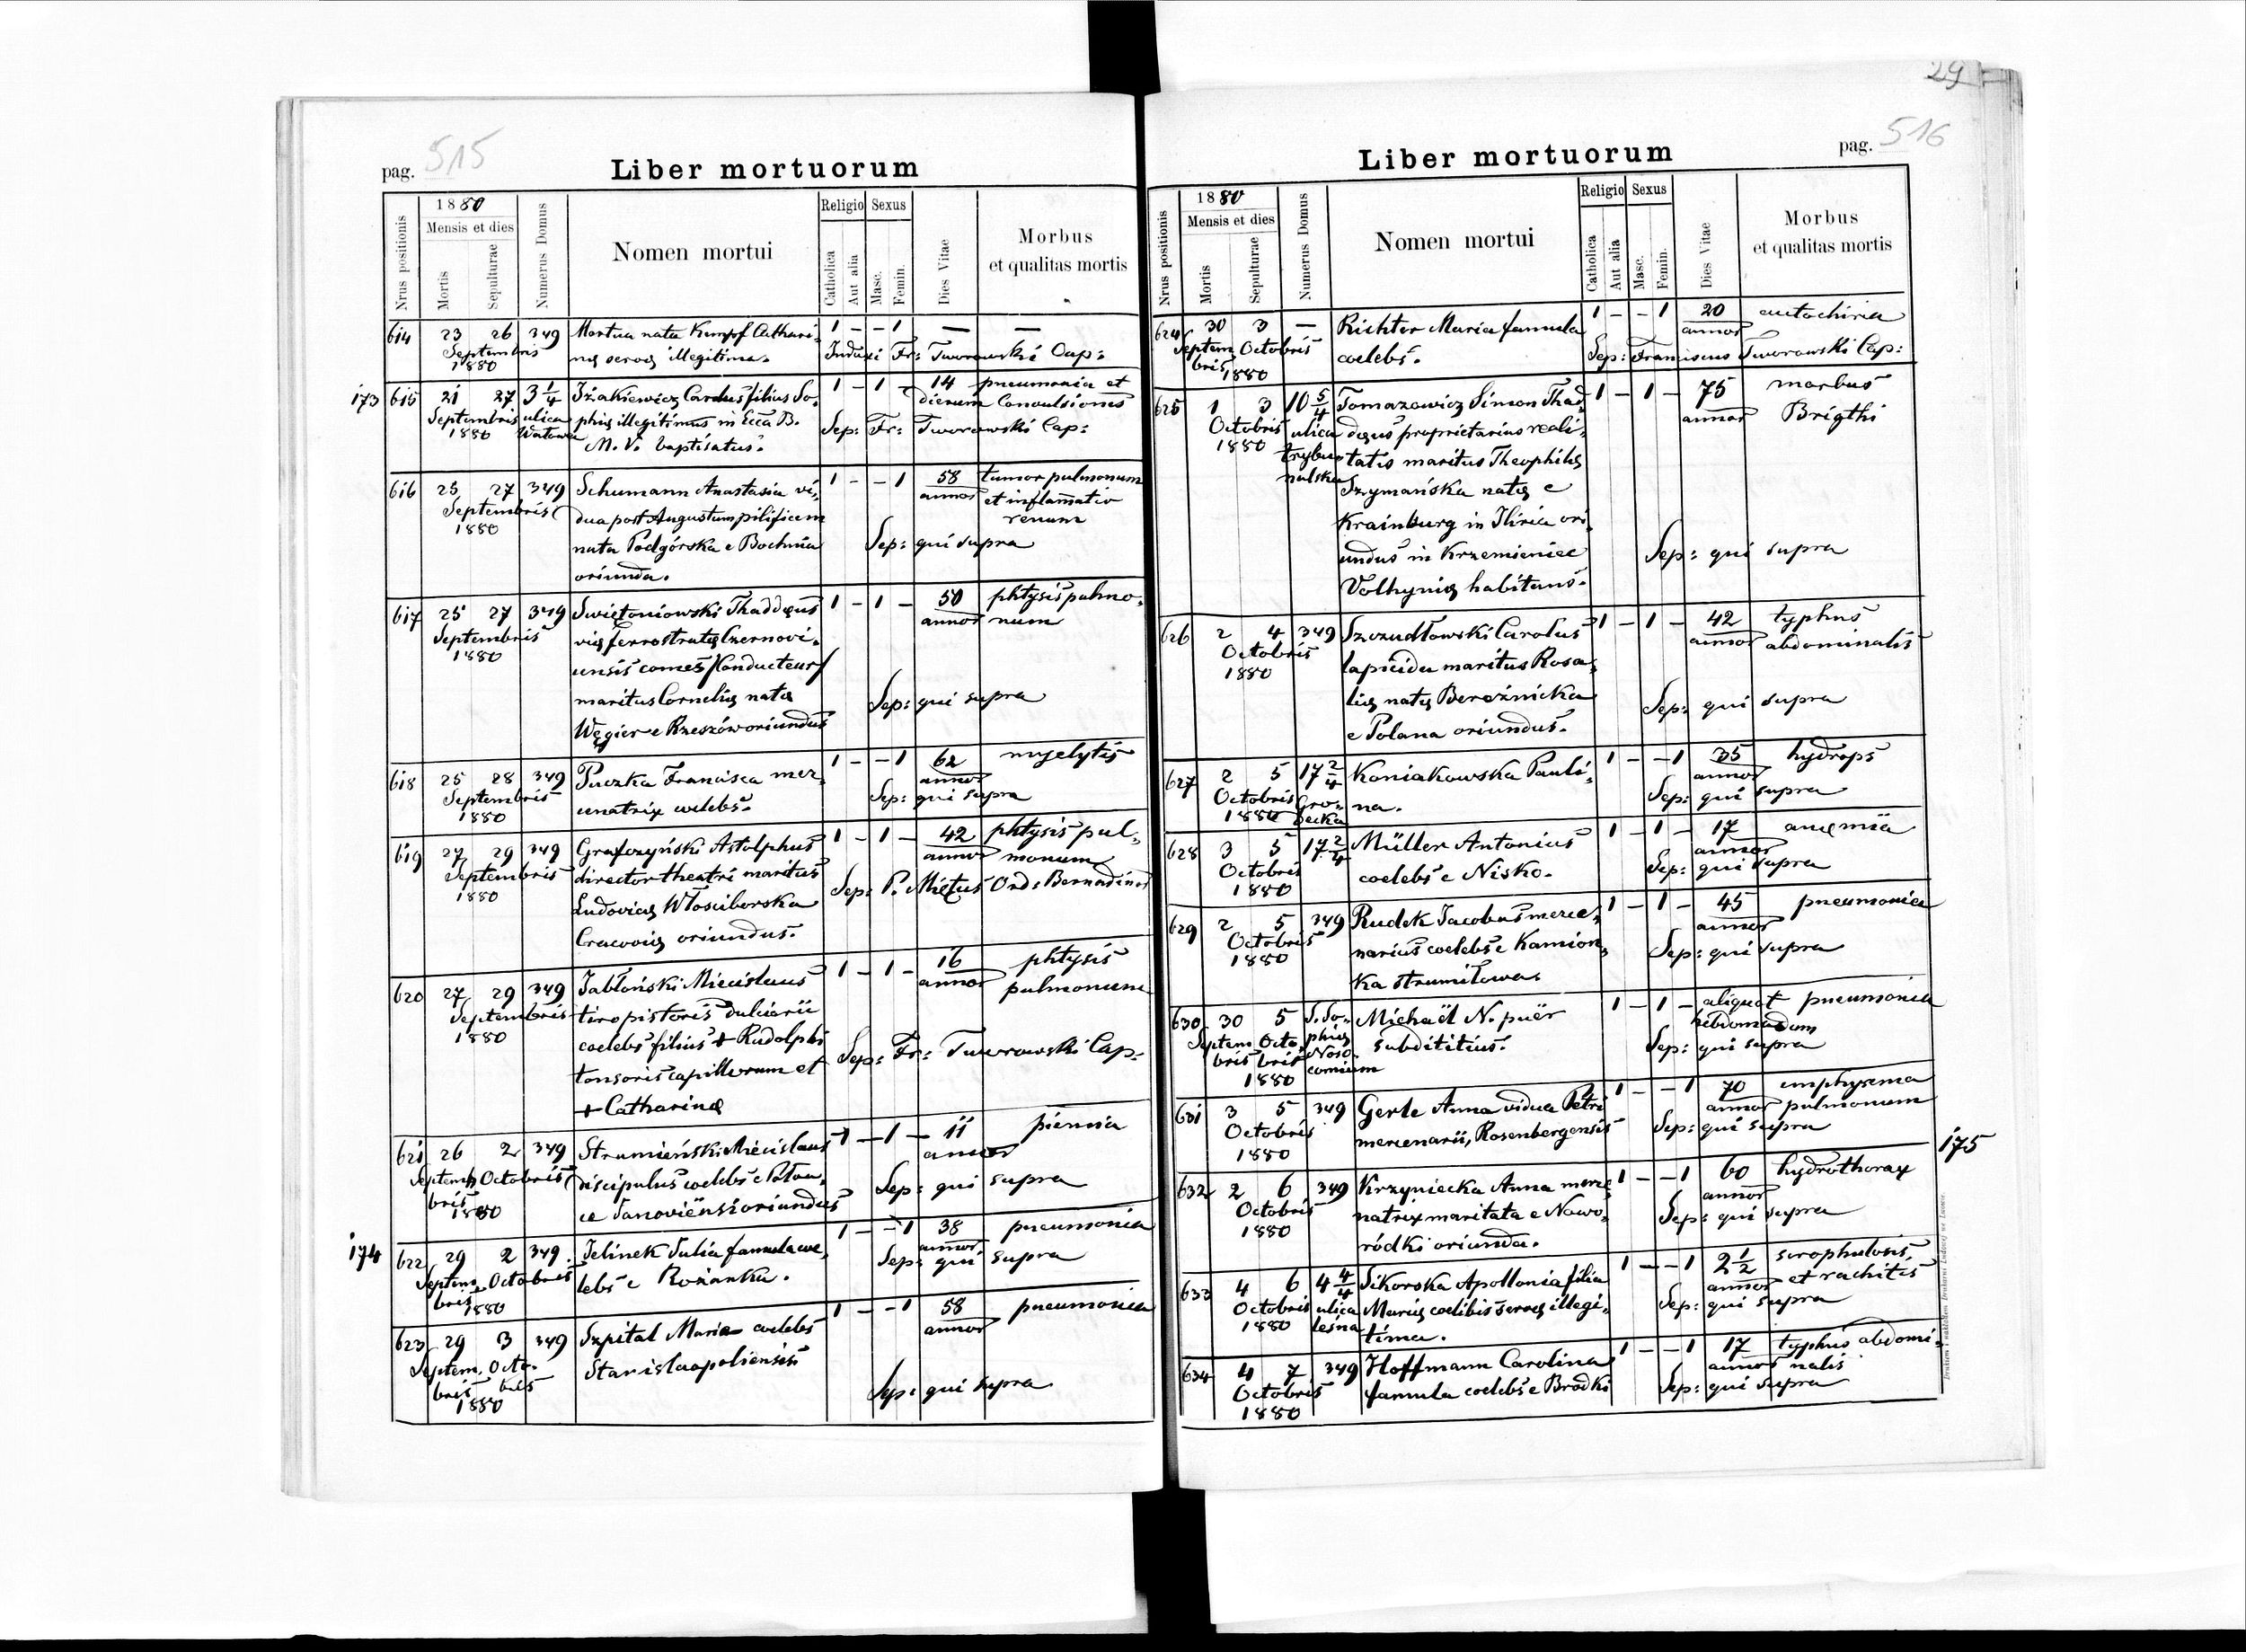 29
pag. 515
Liber mortuorum
Nrus positionis
1880
Mensis et dies
Mortis
Sepulturae
Numerus Domus
Nomen mortui
Religio
Catholica
Aut alia
Sexus
Masc.
Femin.
Dies Vitae
Morbus
et qualitas mortis
614 23 26 349 Mortua nata Kumpf Cathari- 1 - - 1 — —
Septembris nę servę illegitima. Induxi Fr: Tworowski Cap:
1880
173 615 21 27 3 1/4 Iżakiewicz Carolus filius So- 1 - 1 - 14 pneumonia et
Septembris ulica phię illegitimus in Ecca B. dierum Convulsiones
1880 Watowa M. V. baptisatus. Sep: Fr: Tworowski Cap:
616 25 27 349 Schumann Anastasia vi- 1 - - 1 58 tumor pulmonum
Septembris dua post Augustum pilificem annor et inflam̄atio
1880 nata Podgórska e Bochnia renum
oriunda. Sep: qui supra
617 25 27 349 Swiętoniowski Thaddęus 1 - 1 - 50 phtysis pulmo-
Septembris vię ferrostratę Czernovi- annor num
1880 ensis comes /Conducteur/
maritus Cornelię natę Sep: qui supra
Węgier e Rzeszów oriundus
618 25 28 349 Puczka Francisca mer- 1 - - 1 62 myelytis
Septembris cenatrix coelebs. annor
1880 Sep: qui supra
619 27 29 349 Grafczyński Astolphus 1 - 1 - 42 phtysis pul-
Septembris director theatri maritus annor monum
1880 Ludovicę Włosciborska Sep: P. Miętus Ord: Bernadinor
Cracovię oriundus.
620 27 29 349 Jabłoński Miecislaus 1 - 1 - 16 phtysis
Septembris tiro pistoris dulciarii annor pulmonum
1880 coelebs filius + Rudolphi
tonsoris capillorum et Sep: Fr: Tworowski Cap:
+ Catharinę
621 26 2 349 Strumieński Miecislaus 1 - 1 - 11 piemia
Septem- Octobris discipulus coelebs e annor
bris 1880 Janoviensi oriundus Sep: qui supra
174 622 29 2 349 Jelinek Julia famula coe- 1 - - 1 38 pneumonia
Septem- Octobris lebs e Rożanka. annor
bris 1880 Sep: qui supra
623 29 3 349 Szpital Maria coelebs 1 - - 1 58 pneumonia
Septem- Octo- Stanislaopoliensis annor
bris bris
1880 Sep: qui supra
pag. 516
Liber mortuorum
Nrus positionis
1880
Mensis et dies
Mortis
Sepulturae
Numerus Domus
Nomen mortui
Religio
Catholica
Aut alia
Sexus
Masc.
Femin.
Dies Vitae
Morbus
et qualitas mortis
624 30 3 — Richter Maria famula 1 - - 1 20 autochiria
Septem- Octobris coelebs. annor
bris 1880 Sep: Franciscus Tworowski Cap:
625 1 3 10 5/4 Tomazowicz Simon Thad- 1 - 1 - 75 morbus
Octobris ulica dęus proprietarius reali- annor Brigthi
1880 trybu- tatis maritus Theophilę
nalska Szymańska natę e
Krainburg in Iliria ori-
undus in Krzemieniec Sep: qui supra
Volhynię habitans.
626 2 4 349 Szczudłowski Carolus 1 - 1 - 42 typhus
Octobris lapicida maritus Rosa- annor abdominalis
1880 lię natę Bereźnicka Sep: qui supra
e Polana oriundus.
627 2 5 17 2/4 Koniakowska Pauli- 1 - - 1 35 hydrops
Octobris Gro- na. annor
1880 decka Sep: qui supra
628 3 5 17 2/4 Müller Antonius 1 - 1 - 17 anęmia
Octobris coelebs e Nisko. annor
1880 Sep: qui supra
629 2 5 349 Rudek Jacobus merce- 1 - 1 - 45 pneumonia
Octobris narius coelebs e Kamion- annor
1880 ka strumiłowa. Sep: qui supra
630 30 5 S. So- Michaël N. puër 1 - 1 - aliquot pneumonia
Septem- Octo- phię subdititius. hebdomadum
bris bris Noso- Sep: qui supra
1880 comium
631 3 5 349 Gerle Anna vidua Petri 1 - - 1 70 emphysema
Octobris mercenarii, Rosenbergensis annor pulmonum
1880 Sep: qui supra
175
632 2 6 349 Krzyniecka Anna merce- 1 - - 1 60 hydrothorax
Octobris natrix maritata e Nowo- annor
1880 ródki oriunda. Sep: qui supra
633 4 6 4 4/4 Sikorska Apollonia filia 1 - - 1 2 1/2 scrophulosis
Octobris ulica Marię coelibis servę illegi- annor et rachitis
1880 leśna tima. Sep: qui supra
634 4 7 349 Hoffmann Carolina 1 - - 1 17 typhus abdomi-
Octobris famula coelebs e Brodki annor nalis
1880 Sep: qui supra